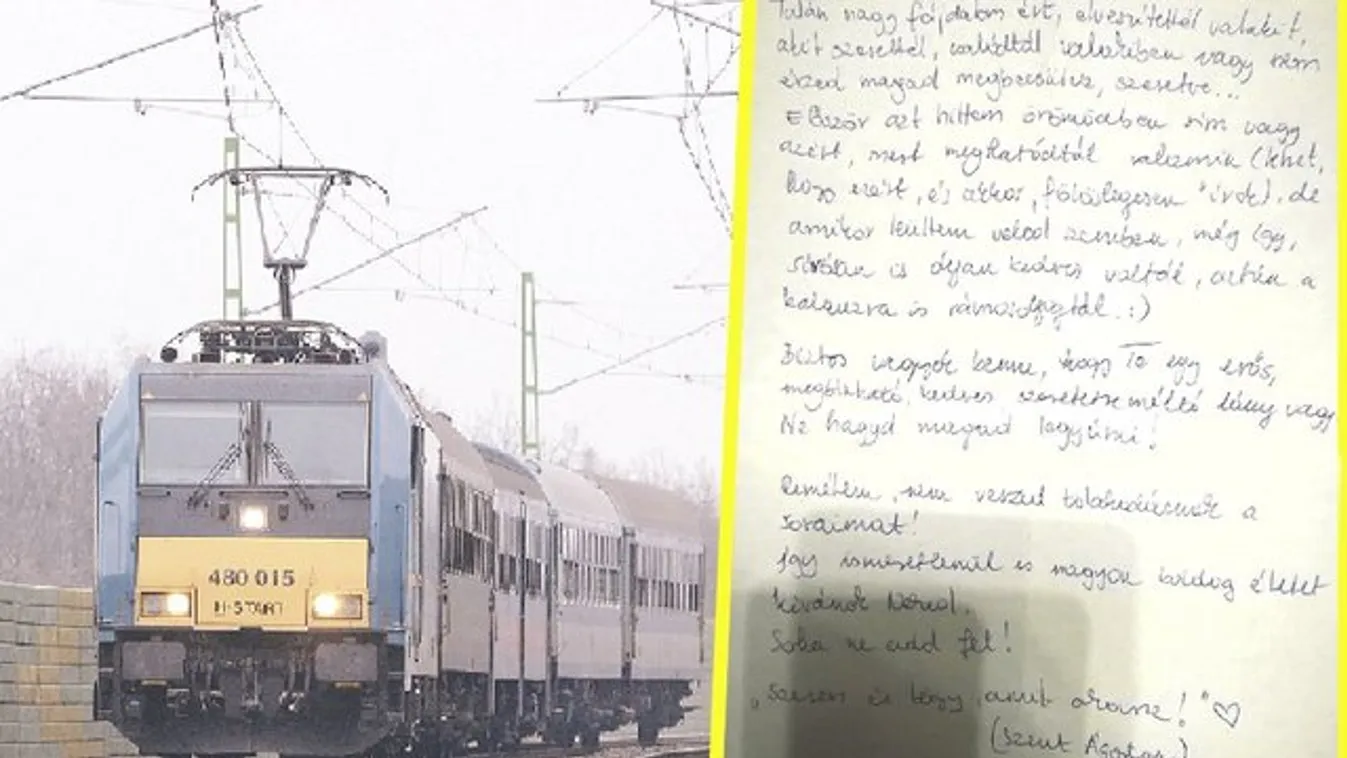 480 015
H-START
Talán nagy fájdalom ért, elveszítettél valakit,
akit szerettél, csalódtál valakiben vagy nem
érzed magad megbecsülve, szeretve...
Először azt hittem örömödben sírsz vagy
azért, mert meghatódtál valamin (lehet,
hogy ezért, és akkor, fölöslegesen "írok), de
amikor leültem veled szemben, még így,
sírósan is olyan kedves voltál, aztán a
kalauzra is rámosolyogtál. :)
Biztos vagyok benne, hogy Te egy erős,
megbízható, kedves szeretetre méltó lány vagy
Ne hagyd magad legyűrni!
Remélem, nem veszed tolakodásnak a
soraimat!
Így ismeretlenül is nagyon boldog életet
kívánok Neked.
Soha ne add fel!
„Szeress és tégy, amit akarsz!" ♡
(Szent Ágoston)